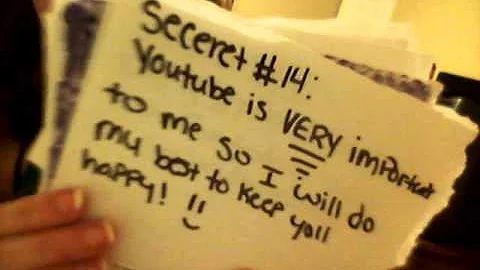 Seceret #14:
Youtube is VERY important
to me so I will do
my best to keep yall
happy! !!